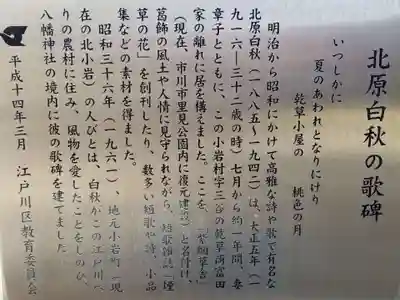 北原白秋の歌碑
いつしかに
夏のあわれとなりにけり
乾草小屋の　桃色の月
明治から昭和にかけて高雅な詩や歌で有名な
北原白秋（一八八五〜一九四二）は、大正五年（一
九一六―三十二歳の時）七月から約一年間、妻
章子とともに、この小岩村字三谷の乾草商富田
家の離れに居を構えました。ここを、「紫烟草舎」
（現在、市川市里見公園内に復元建設）と名付け、
葛飾の風土や人情に見守られながら、短歌雑誌「煙
草の花」を創刊したり、数多い短歌や詩、小品
集などの素材を得ました。
昭和三十六年（一九六一）、地元小岩町（現
在の北小岩）の人びとは、白秋がこの江戸川べ
りの農村に住み、風物を愛したことをしのび、
八幡神社の境内に彼の歌碑を建てました。
平成十四年三月　江戸川区教育委員会